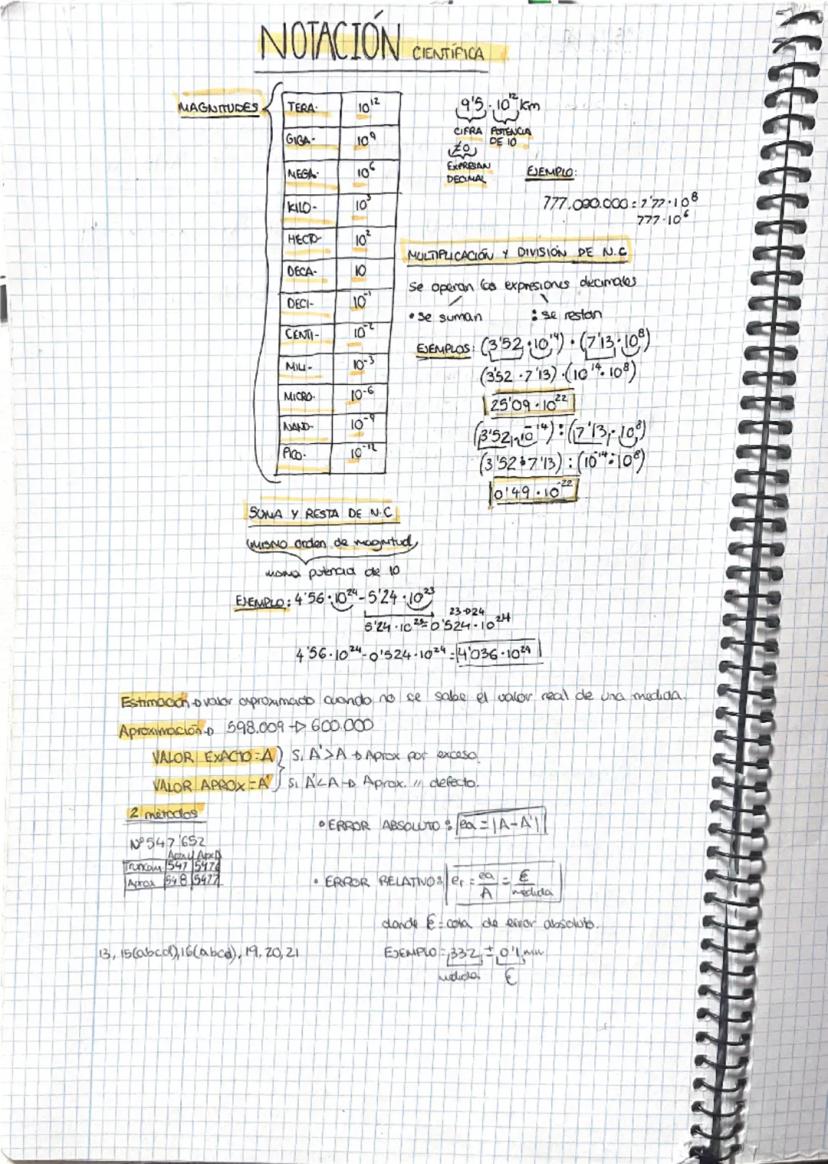 NOTACIÓN CIENTÍFICA
MAGNITUDES
TERA- 10¹²
GIGA- 10⁹
MEGA- 10⁶
KILO- 10³
HECTO- 10²
DECA- 10
DECI- 10⁻¹
CENTI- 10⁻²
MILI- 10⁻³
MICRO- 10⁻⁶
NANO- 10⁻⁹
PICO- 10⁻¹²
9'5 · 10¹² km
CIFRA POTENCIA
≠0 DE 10
EXPRESIÓN
DECIMAL
EJEMPLO:
777.000.000 = 7'77 · 10⁸
777 · 10⁶
MULTIPLICACIÓN Y DIVISIÓN DE N.C
Se operan las expresiones decimales
• se suman : se restan
EJEMPLOS: (3'52 · 10¹⁴) · (7'13 · 10⁸)
(3'52 · 7'13) · (10¹⁴ · 10⁸)
25'09 · 10²²
(3'52 · 10⁻¹⁴) : (7'13 · 10⁸)
(3'52 : 7'13) : (10⁻¹⁴ : 10⁸)
0'49 · 10⁻²²
SUMA Y RESTA DE N.C
mismo orden de magnitud
misma potencia de 10
EJEMPLO: 4'56 · 10²⁴ - 5'24 · 10²³
23→24
5'24 · 10²³ = 0'524 · 10²⁴
4'56 · 10²⁴ - 0'524 · 10²⁴ = 4'036 · 10²⁴
Estimación → valor aproximado cuando no se sabe el valor real de una medida.
Aproximación → 598.009 → 600.000
VALOR EXACTO = A } Si A' > A → Aprox por exceso.
VALOR APROX = A' } Si A' < A → Aprox. " defecto.
2 métodos
Nº 547'652
Apx U Apx D
Truncam 547 547'6
Aprox 548 547'7
• ERROR ABSOLUTO: ea = |A - A'|
• ERROR RELATIVO: er = ea/A = Ɛ/medida
donde Ɛ = cota de error absoluto.
EJEMPLO = 332 ± 0'1 min
medida Ɛ
13, 15(abcd), 16(abcd), 19, 20, 21